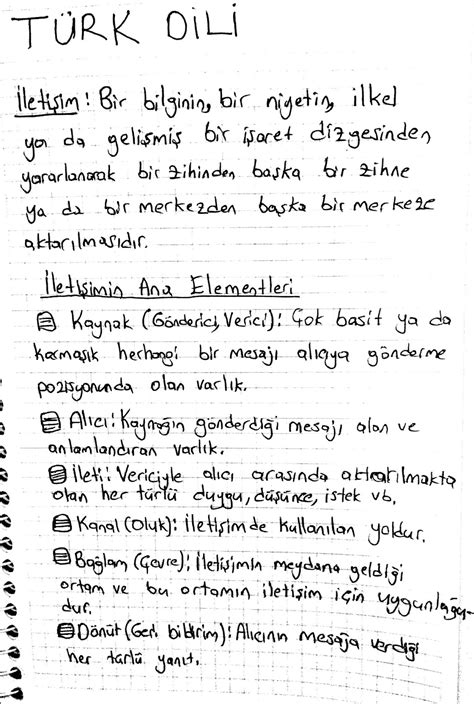 TÜRK DİLİ
İletişim: Bir bilginin, bir niyetin, ilkel
ya da gelişmiş bir işaret dizgesinden
yararlanarak bir zihinden başka bir zihne
ya da bir merkezden başka bir merkeze
aktarılmasıdır.
İletişimin Ana Elementleri
Kaynak (Gönderici, Verici): Çok basit ya da
karmaşık herhangi bir mesajı alıcıya gönderme
pozisyonunda olan varlık.
Alıcı: Kaynağın gönderdiği mesajı alan ve
anlamlandıran varlık.
İleti: Vericiyle alıcı arasında aktarılmakta
olan her türlü duygu, düşünce, istek vb.
Kanal (Oluk): İletişimde kullanılan yoldur.
Bağlam (Çevre): İletişimin meydana geldiği
ortam ve bu ortamın iletişim için uygunluğu-
dur.
Dönüt (Geri bildirim): Alıcının mesaja verdiği
her türlü yanıt.